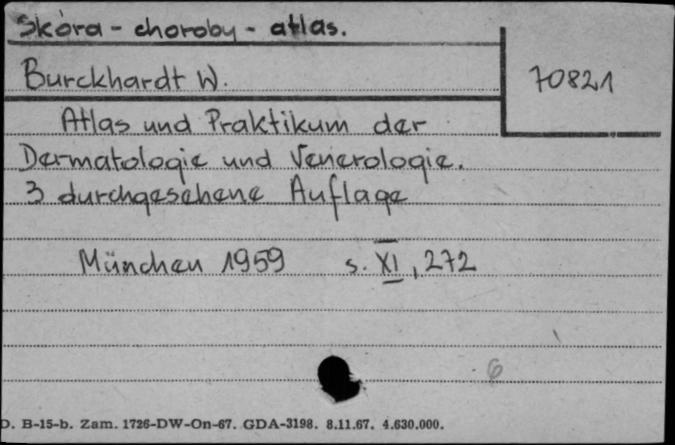 Skóra - choroby - atlas.
Burckhardt W.
70821
Atlas und Praktikum der
Dermatologie und Venerologie.
3 durchgesehene Auflage
München 1959 s. XI, 272
6
D. B-15-b. Zam. 1726-DW-On-67. GDA-3198. 8.11.67. 4.630.000.